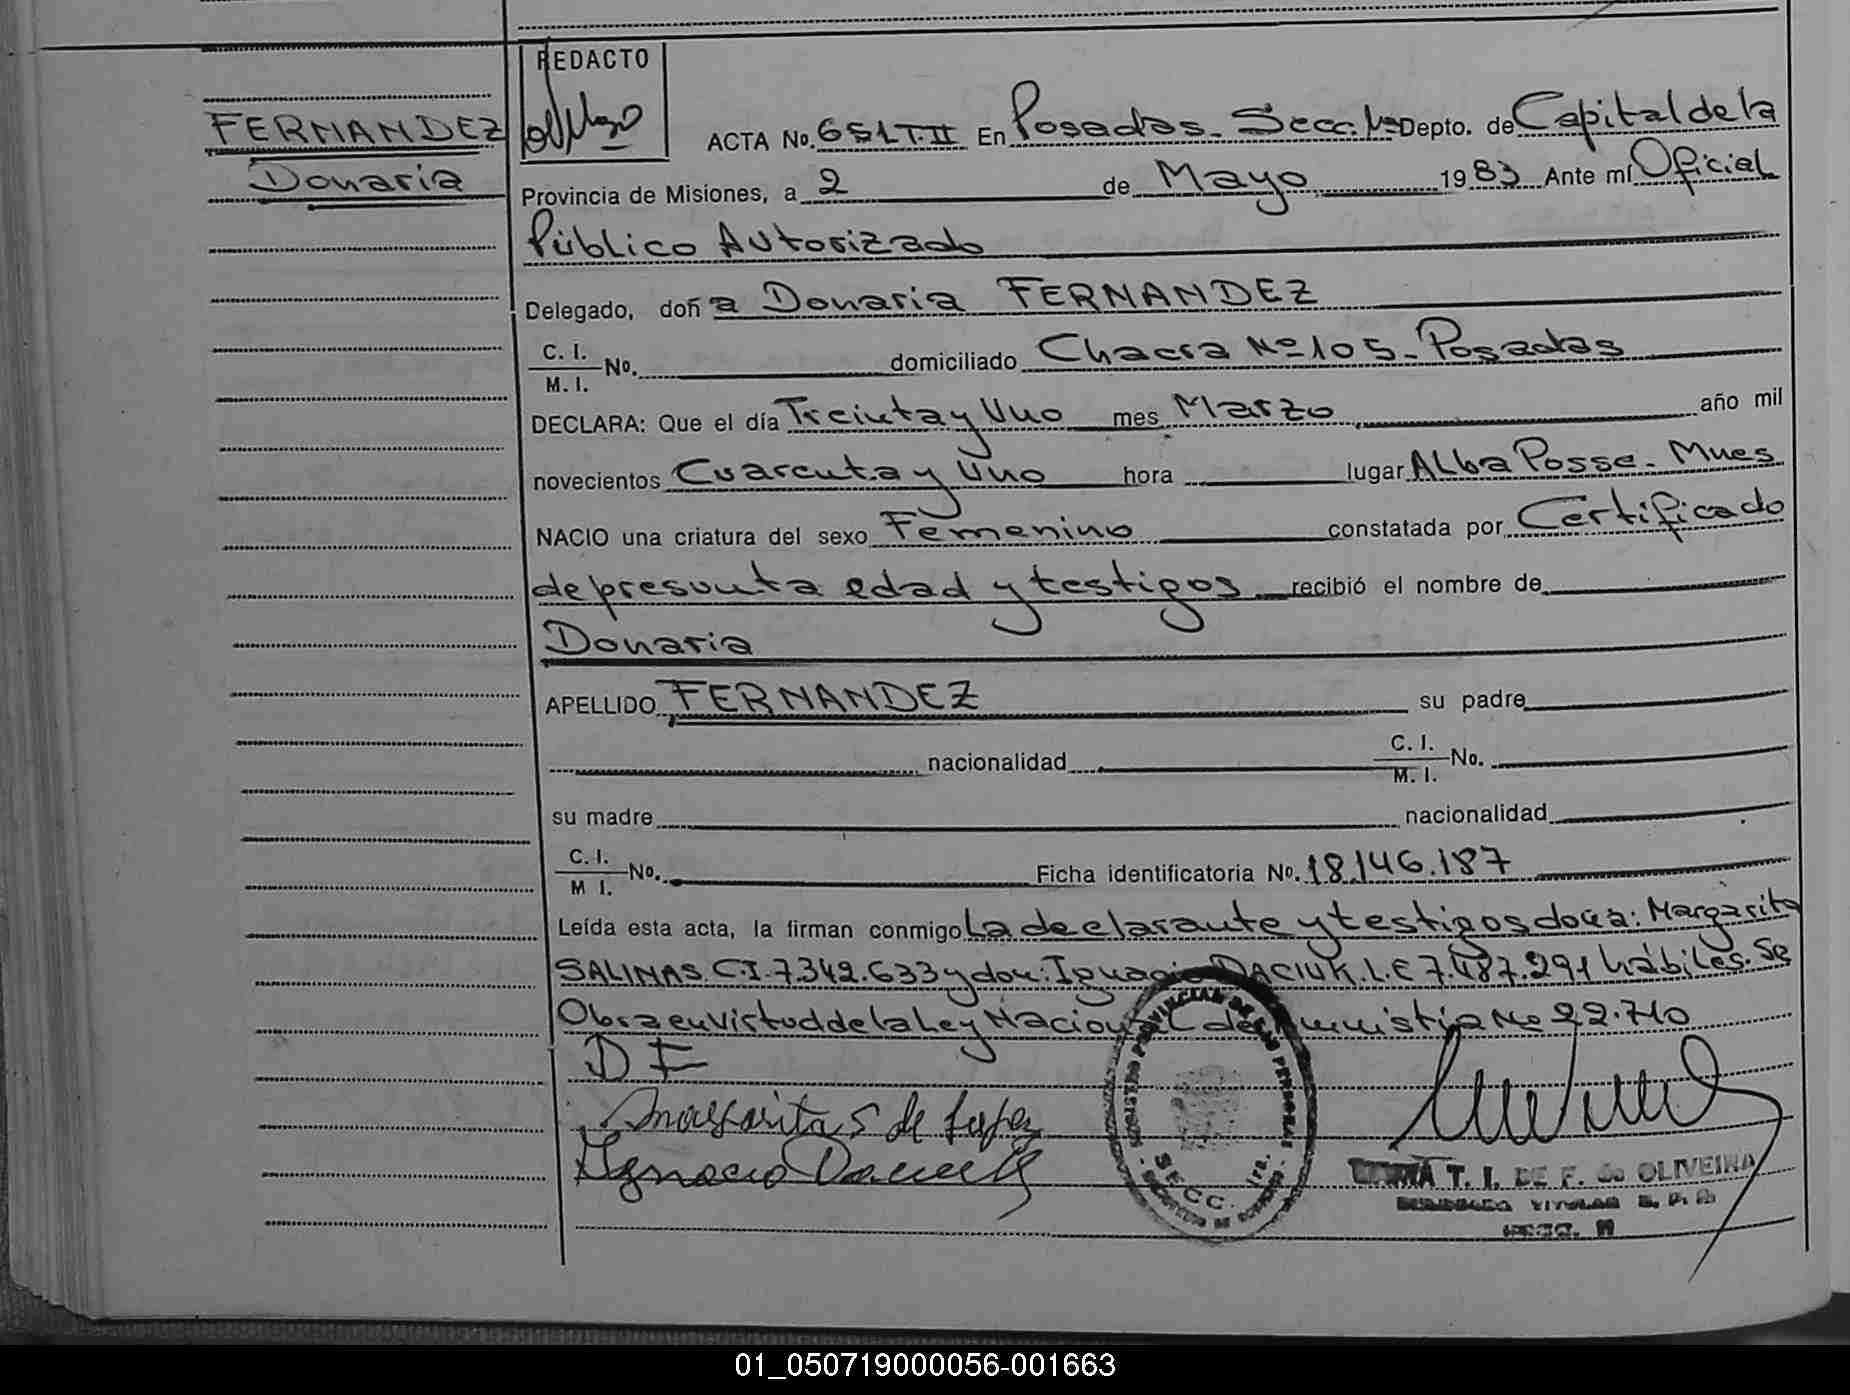 REDACTO
FERNANDEZ
Donaria
ACTA No. 651 T.II En Posadas - Secc. 1ª Depto. de Capital de la
Provincia de Misiones, a 2 de Mayo 1983 Ante mí Oficial
Público Autorizado
Delegado, doña Donaria FERNANDEZ
C. I. / M. I. No. domiciliado Chacra Nº 105 - Posadas
DECLARA: Que el día Treinta y Uno mes Marzo año mil
novecientos Cuarenta y Uno hora lugar Alba Posse - Mnes
NACIO una criatura del sexo Femenino constatada por Certificado
de presunta edad y testigos recibió el nombre de
Donaria
APELLIDO FERNANDEZ su padre
nacionalidad C. I. / M. I. No.
su madre nacionalidad
C. I. / M I. No. Ficha identificatoria No. 18.146.187
Leída esta acta, la firman conmigo La declarante y testigos doña: Margarita
SALINAS. C.I. 7.342.633 y don: Ignacio DACIUK. L.E 7.487.291 hábiles. Se
Obra en virtud de la Ley Nacional de Amnistia Nº 22.710
D F
Margarita S de
Ignacio Daciuk
REGISTRO PROVINCIAL DE LAS PERSONAS
SECC. 1ra.
T. I. DE F. de OLIVEIRA
TITULAR R. P. P.
SECC.
01_050719000056-001663